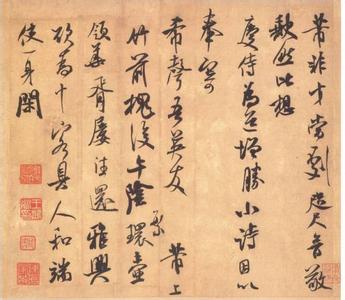 芾非才當劇咫尺音敬
然比想
慶侍為道增勝小詩因以
奉寄
希聲吾英友 芾上
竹前槐後午陰環壺
繁
領華胥屢往還雅興
欲為十客具人和端
使一身閑